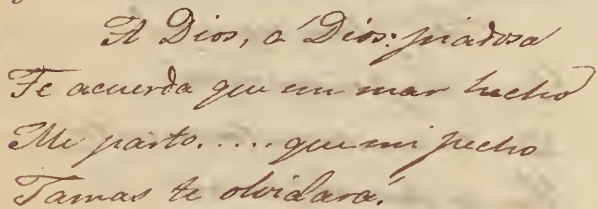 A Dios, á Dios: piadosa
Te acuerda que en mar hecho
Me parto..... que mi pecho
Jamas te olvidará.